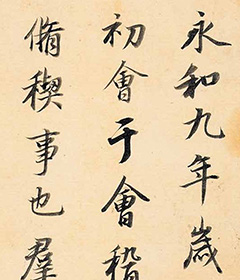 永和九年歲
初會于會稽
脩稧事也羣